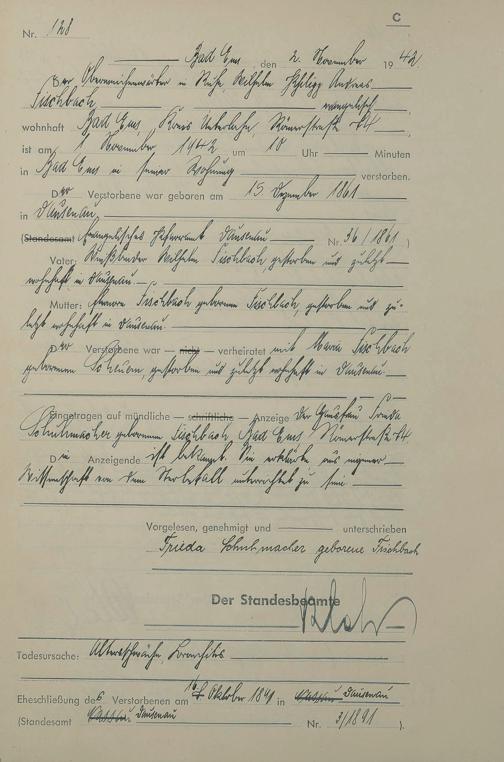 C
Nr. 128
Bad Ems, den 2. November 1942
Der Oberweichenwärter in Ruhe Wilhelm Philipp Andreas
Fischbach, evangelisch
wohnhaft Bad Ems, Kreis Unterlahn, Römerstraße 44,
ist am 1. November 1942 um 10 Uhr Minuten
in Bad Ems in seiner Wohnung verstorben.
Der Verstorbene war geboren am 15. Dezember 1861
in Dausenau,
(Standesamt Evangelisches Pfarramt Dausenau Nr. 36/1861)
Vater: Wilhelm Fischbach, gestorben und zuletzt
wohnhaft in Dausenau.
Mutter: Fischbach geborenen Fischbach, gestorben und zu-
letzt wohnhaft in Dausenau.
Der Verstorbene war — nicht — verheiratet mit Maria Fischbach
geborenen, gestorben und zuletzt wohnhaft in Dausenau.
Eingetragen auf mündliche — schriftliche — Anzeige der Ehefrau Frieda
Schuhmacher geborenen Fischbach, Bad Ems Römerstraße 44
Die Anzeigende ist bekannt. Sie erklärte aus eigener
Wissenschaft von dem Sterbefall unterrichtet zu sein.
Vorgelesen, genehmigt und unterschrieben
Frieda Schuhmacher geborene Fischbach
Der Standesbeamte
Todesursache: Altersschwäche, Bronchitis
Eheschließung des Verstorbenen am Oktober 1891 in Dausenau
(Standesamt Dausenau Nr. 3/1891).